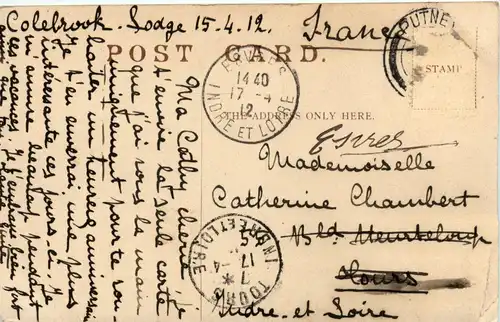 Colebrook Lodge 15-4.12.
France
PUTNEY
POST CARD.
STAMP
THE ADDRESS ONLY HERE.
ESVRES
14 40
17 - 4
12
INDRE ET LOIRE
Esvres
Mademoiselle
Catherine Chambert
Bld Heurteloup
Tours
Indre-et-Loire
TOURS
INDRE ET LOIRE
17 - 4
Ma Cathy chérie, je
t'envoie la seule carte
que j'ai sous la main
uniquement pour te sou-
haiter un heureux anniversaire
Je t'en enverrai une plus
intéressante ces jours-ci. Je
m'ennuie beaucoup pendant
les vacances. Je t'embrasse bien fort
ainsi que